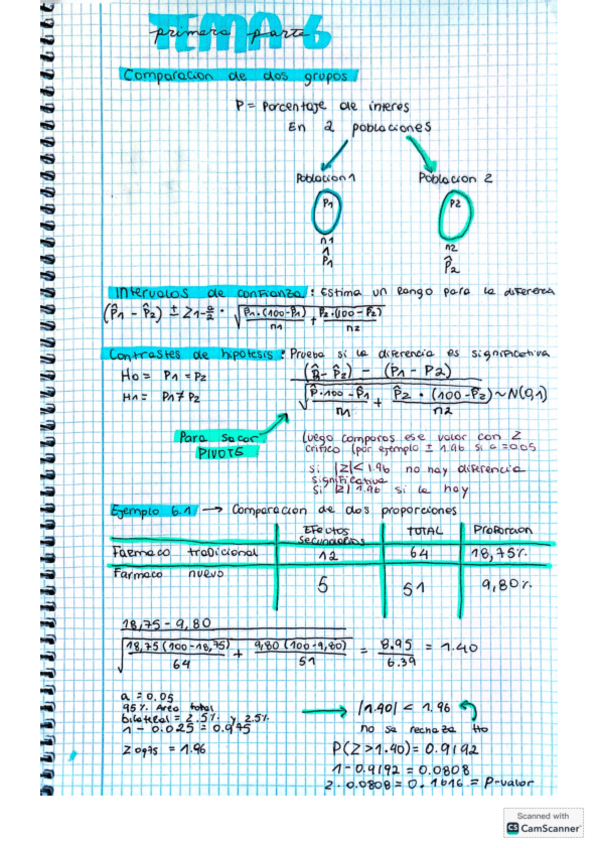 TEMA 6
primera parte
Comparacion de dos grupos
P = Porcentaje de interes
En 2 poblaciones
Poblacion 1 Poblacion 2
P1 P2
n1 n2
P̂1 P̂2
Intervalos de confianza: Estima un Rango para la diferencia
(P̂1 - P̂2) ± Z1-α/2 · √(P̂1·(100-P̂1)/n1 + P̂2·(100-P̂2)/n2)
Contrastes de hipotesis: Prueba si la diferencia es significativa
H0 = P1 = P2
H1 = P1 ≠ P2
(P̂1 - P̂2) - (P1 - P2) / √(P̂·100-P̂1/n1 + P̂2·(100-P̂2)/n2) ~ N(0,1)
Para sacar
PIVOTE
Luego comparas ese valor con Z
critico (por ejemplo ± 1.96 si α = 0.05
si |Z| < 1.96 no hay diferencia
significativa
si |Z| 1.96 si la hay
Ejemplo 6.1 → Comparacion de dos proporciones
Efectos secundarios TOTAL Proporcion
Farmaco tradicional 12 64 18,75%
Farmaco nuevo 5 51 9,80%
18,75 - 9,80 / √(18,75(100-18,75)/64 + 9,80(100-9,80)/51) = 8.95/6.39 = 1.40
a = 0.05
95% Area total
bilateral = 2.5% y 2.5%
1 - 0.025 = 0.975
Z 0.975 = 1.96
→ |1.40| < 1.96
no se rechaza H0
P(Z > 1.40) = 0.9192
1 - 0.9192 = 0.0808
2 · 0.0808 = 0.1616 = P-valor
Scanned with
CS CamScanner